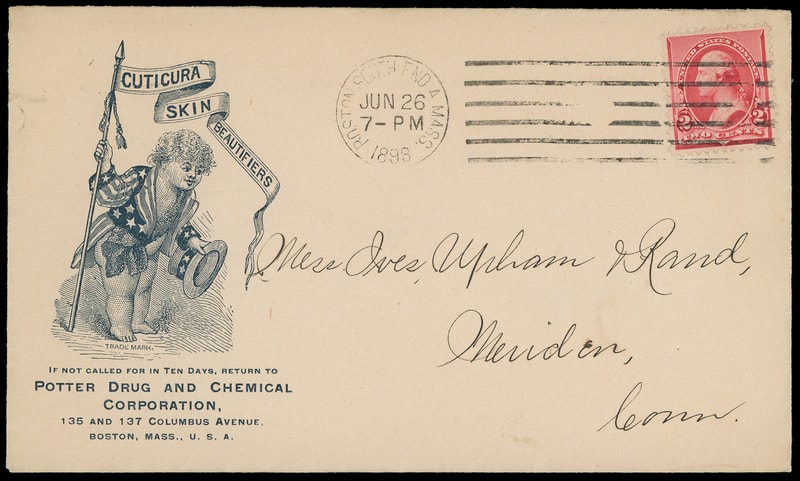 CUTICURA
SKIN
BEAUTIFIERS
TRADE MARK.
IF NOT CALLED FOR IN TEN DAYS, RETURN TO
POTTER DRUG AND CHEMICAL
CORPORATION,
135 AND 137 COLUMBUS AVENUE,
BOSTON, MASS., U. S. A.
BOSTON SOUTH END A MASS.
JUN 26
7-PM
1893
UNITED STATES POSTAGE
2 2
TWO CENTS
Mess Ives, Upham & Rand,
Meriden,
Conn.